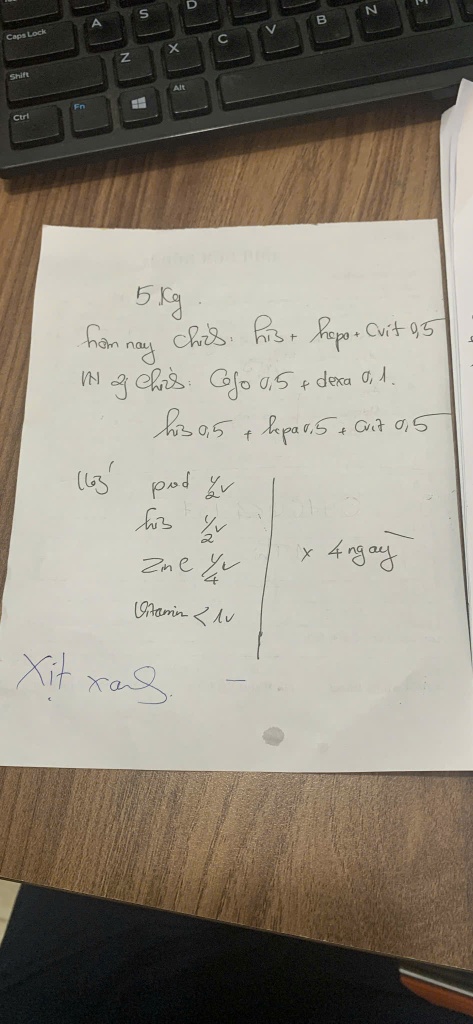 Caps Lock A S D
Shift Z X C V B N M
Ctrl Fn Alt
5 Kg.
hôm nay chích: his + hepa + Cvit 0,5
chích: Cefo 0,5 + dexa 0,1.
his 0,5 + hepa 0,5 + Cvit 0,5
pred 1/2v
his 1/2v
Zinc 1/4v
Vitamin C 1v
x 4 ngày
Xịt xanh.